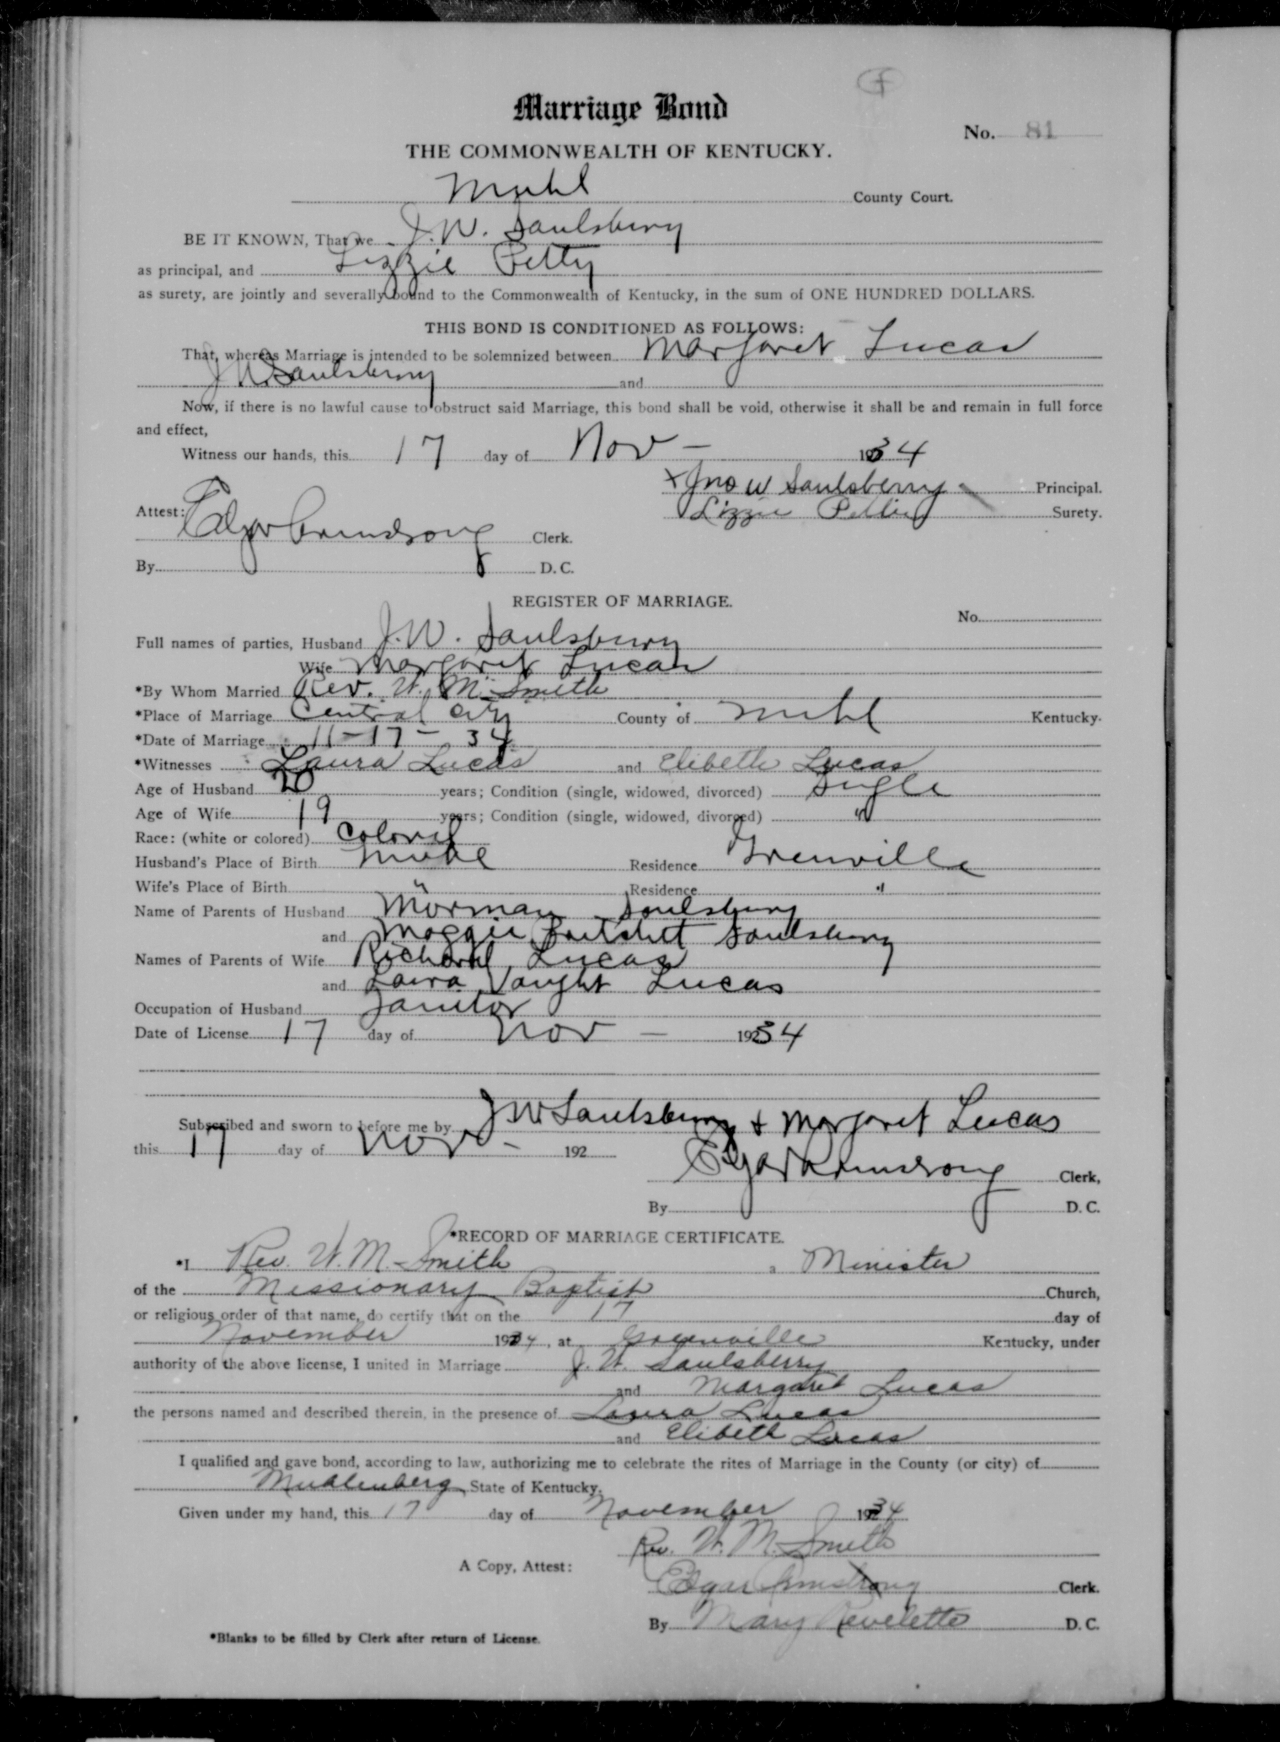 F
Marriage Bond
No. 81
THE COMMONWEALTH OF KENTUCKY.
Muhl County Court.
BE IT KNOWN, That we J.W. Saulsbury
as principal, and Lizzie Petty
as surety, are jointly and severally bound to the Commonwealth of Kentucky, in the sum of ONE HUNDRED DOLLARS.
THIS BOND IS CONDITIONED AS FOLLOWS:
That, whereas Marriage is intended to be solemnized between Margaret Lucas
J W Saulsbury and
Now, if there is no lawful cause to obstruct said Marriage, this bond shall be void, otherwise it shall be and remain in full force
and effect,
Witness our hands, this 17 day of Nov - 1934
x Jno W Saulsberry Principal.
Lizzie Surety.
Attest: Edgar Armstrong Clerk.
By D. C.
REGISTER OF MARRIAGE.
No.
Full names of parties, Husband J.W. Saulsbury
Wife Margaret Lucas
*By Whom Married Rev. W. M. Smith
*Place of Marriage Central City County of Muhl Kentucky.
*Date of Marriage 11-17-34
*Witnesses Laura Lucas and Elibeth Lucas
Age of Husband 20 years; Condition (single, widowed, divorced) Single
Age of Wife 19 years; Condition (single, widowed, divorced) "
Race: (white or colored) Colored
Husband's Place of Birth Muhl Residence Grenville
Wife's Place of Birth " Residence "
Name of Parents of Husband Morman Saulsbury
and Maggie Saulsbury
Names of Parents of Wife Richard Lucas
and Laura Vaught Lucas
Occupation of Husband Janitor
Date of License 17 day of Nov - 1934
Subscribed and sworn to before me by J W Saulsbury + Margaret Lucas
this 17 day of Nov - 192
Edgar Armstrong Clerk,
By D. C.
*RECORD OF MARRIAGE CERTIFICATE.
*I Rev. W. M. Smith , Minister
of the Missionary Baptist Church,
or religious order of that name, do certify that on the 17 day of
November 1934, at Greenville Kentucky, under
authority of the above license, I united in Marriage J. W. Saulsberry
and Margaret Lucas
the persons named and described therein, in the presence of Laura Lucas
and Elibeth Lucas
I qualified and gave bond, according to law, authorizing me to celebrate the rites of Marriage in the County (or city) of
Muhlenberg State of Kentucky.
Given under my hand, this 17 day of November 1934
Rev. W. M. Smith
A Copy, Attest:
Edgar Armstrong Clerk.
By Mary Revelette D. C.
*Blanks to be filled by Clerk after return of License.